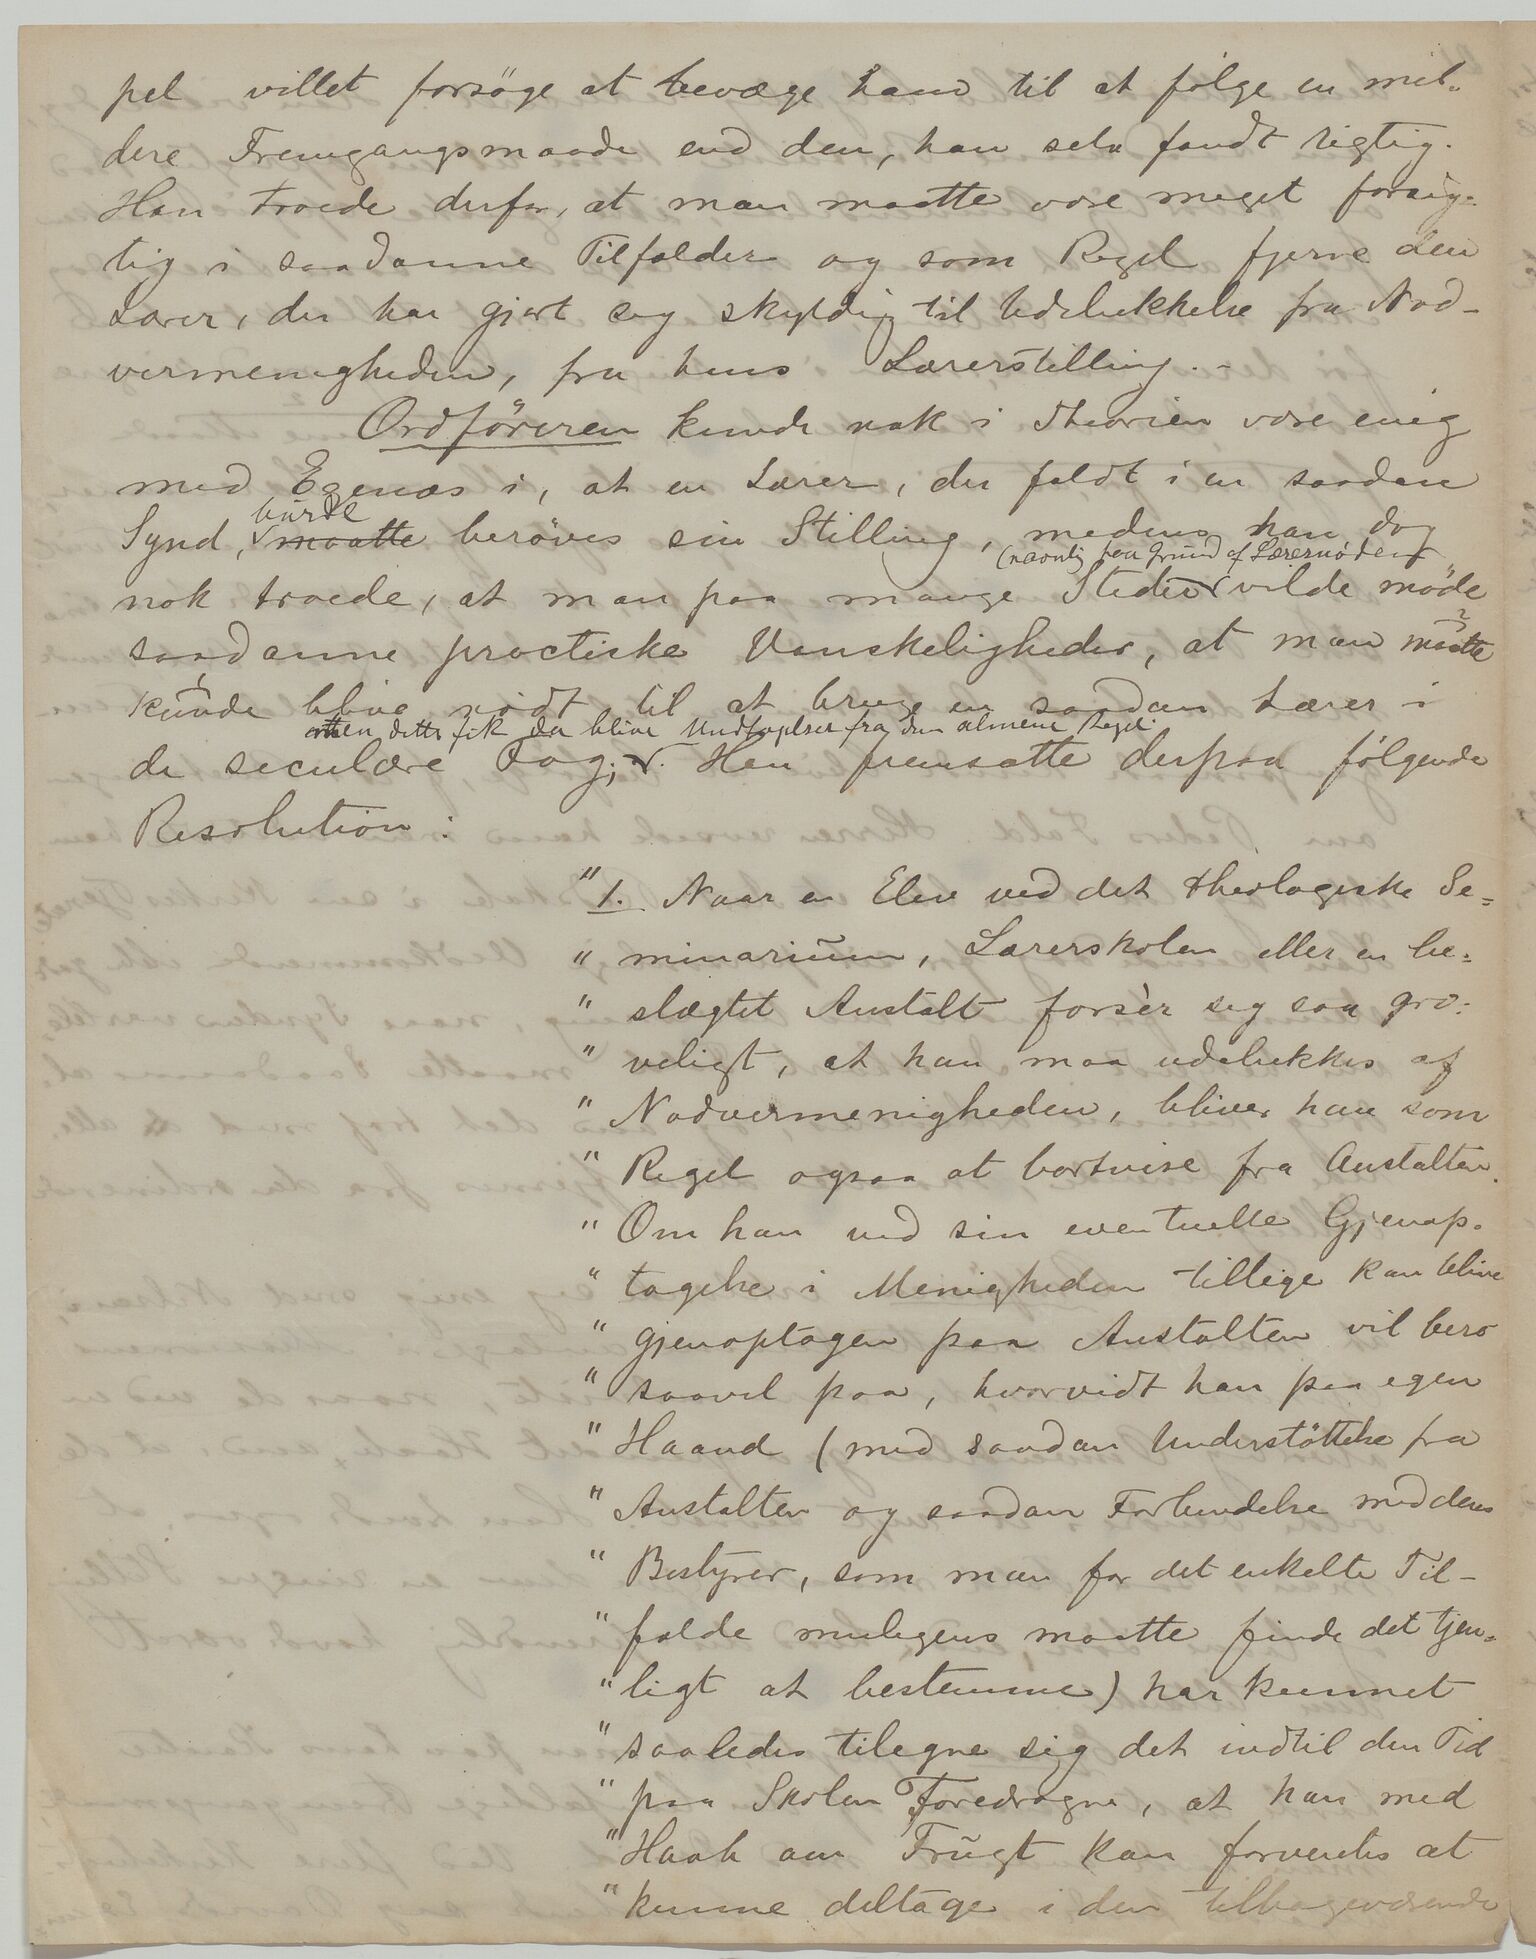 pel villet forsöge at bevæge ham til at följe en mil-
dere Fremgangsmaade end den, han selv fandt rigtig.
Han troede derfor, at man maatte være meget forsig-
tig i saadanne Tilfælder og som Regel fjerne den
Lærer, der har gjort sig skyldig til Udelukkelse fra Nad-
vermenigheden, fra hans Lærerstilling. -
Ordföreren kunde nok i Theorien være enig
med Egenæs i, at en Lærer, der faldt i en saadan
burde
Synd, maatte beröves sin Stilling, medens han dog
(navnlig paa Grund af Lærernöden)
nok troede, at man paa mange Steder vilde möde
saadanne practiske Vanskeligheder, at man maatte
kunde blive nödt til at bruge en saadan Lærer i
men dette fik da blive Undtagelser fra den almene Regel.
de seculære Fag; Han fremsatte derpaa fölgende
Resolution:
" 1. Naar en Elev ved det theologiske Se-
" minarium, Lærerskolen eller en be-
" slægtet Anstalt forsèr sig saa gro-
" veligt, at han maa udelukkes af
" Nadvermenigheden, bliver han som
" Regel ogsaa at bortvise fra Anstalten.
" Om han ved sin eventuelle Gjenop-
" tagelse i Menigheden tillige kan blive
" gjenoptagen paa Anstalten vil bero
" saavel paa, hvorvidt han paa egen
" Haand (med saadan Understöttelse fra
" Anstalten og saadan Forbindelse med dens
" Bestyrer, som man for det enkelte Til-
" fælde muligens maatte finde det tjen-
" ligt at bestemme) har kunnet
" saaledes tilegne sig det indtil den Tid
" paa Skolen Foredragne, at han med
" Haab om Frugt kan forventes at
" kunne deltage i den tilbageværende